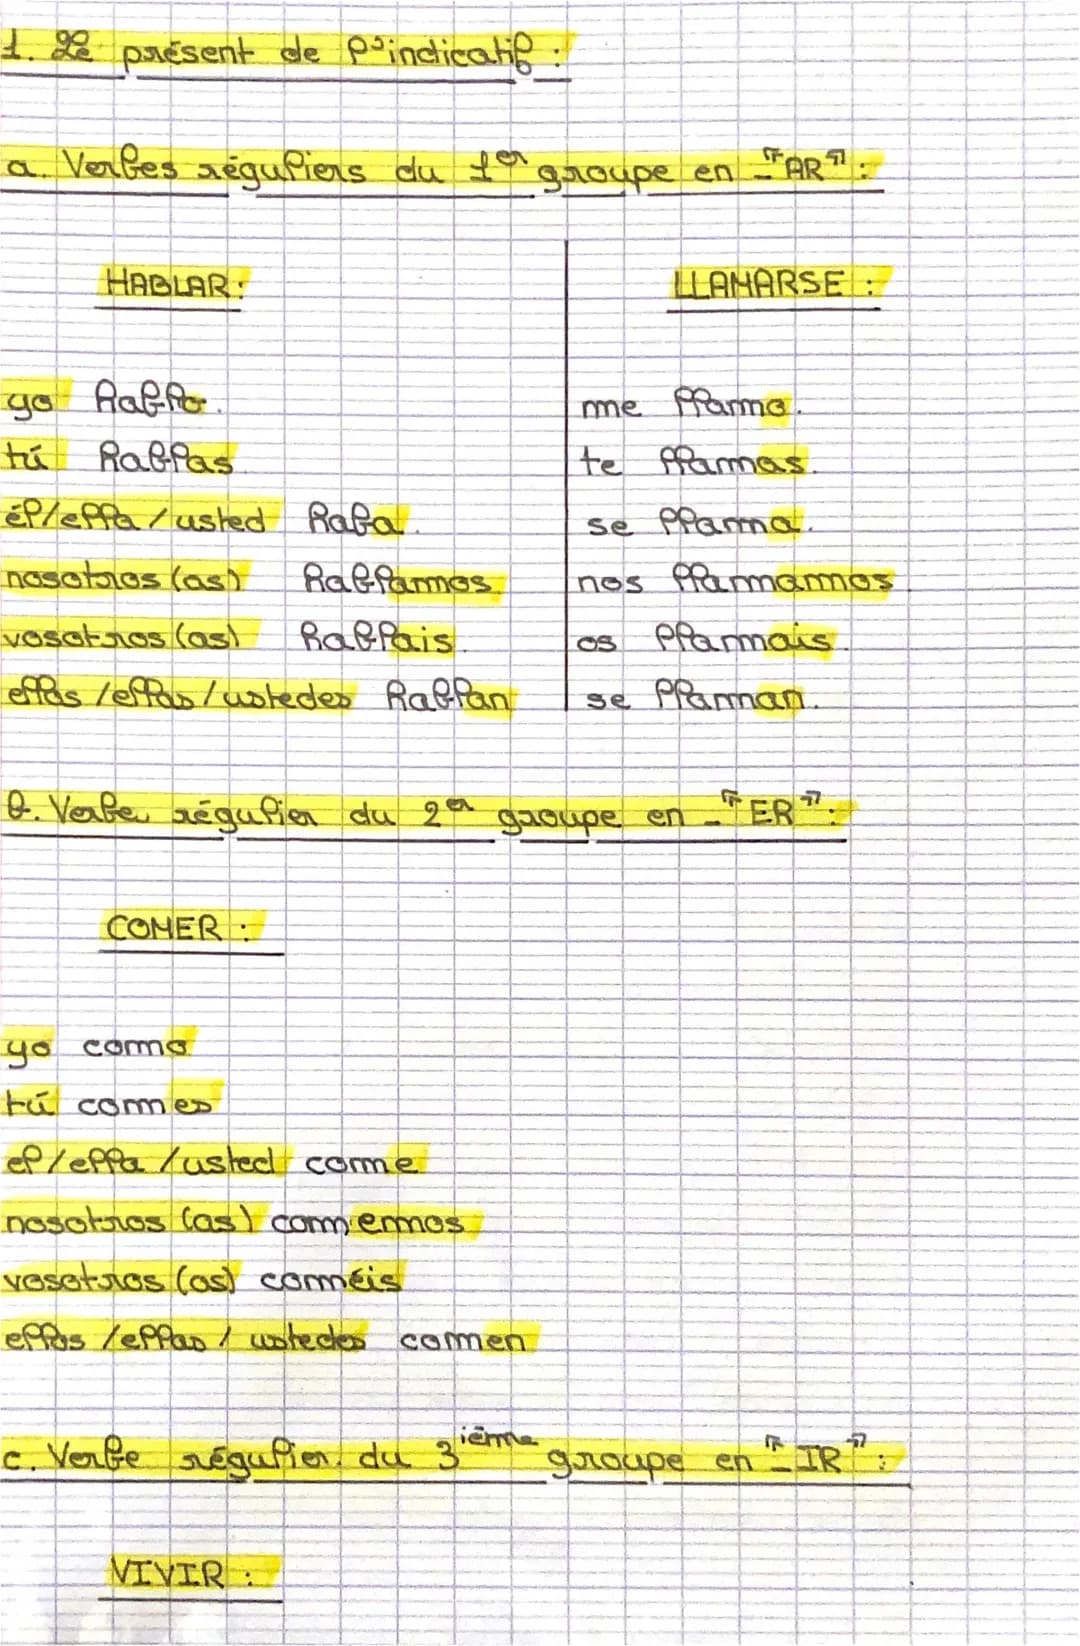 1. Le présent de l'indicatif :
a. Verbes réguliers du 1er groupe en -"AR" :
HABLAR : LLAMARSE :
yo hablo. me llamo.
tú hablas te llamas.
él/ella/usted haba. se llama.
nosotros (as) hablamos. nos llamamos.
vosotros (as) hablais. os llamais.
ellos/ellas/ustedes hablan se llaman.
b. Verbe régulier du 2er groupe en -"ER" :
COMER :
yo como
tú comes
el/ella/usted come
nosotros (as) comemos
vosotros (as) coméis
ellos/ellas/ustedes comen
c. Verbe régulier. du 3ième groupe en "-IR" :
VIVIR :